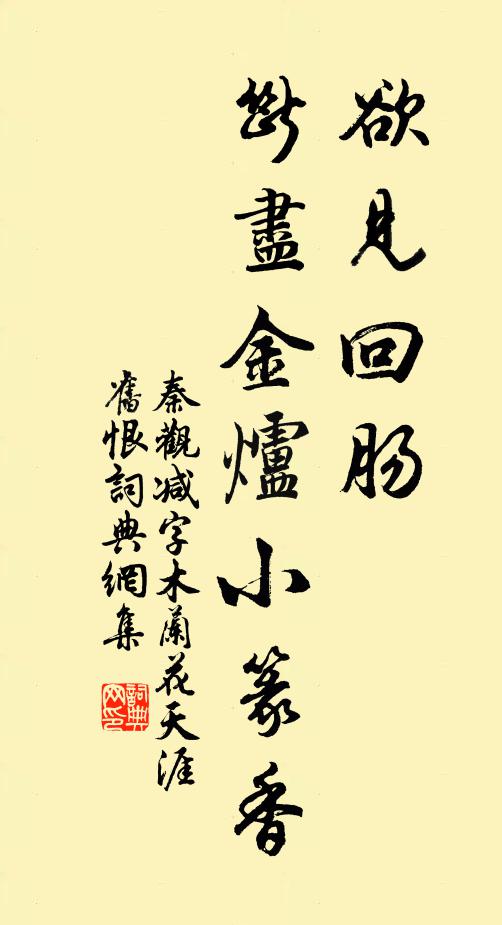 欲見回肠
断盡金爐小篆香
秦觀减字木蘭花天涯
舊恨詞典網集
詞典
网印